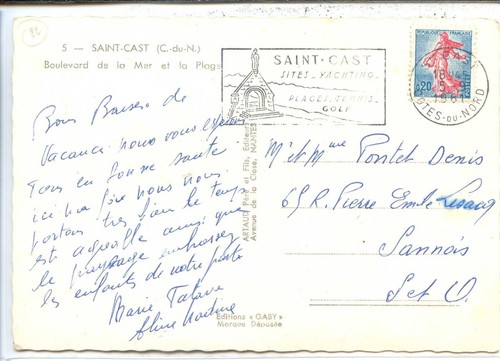 82
5 - SAINT-CAST (C.-du-N.)
Boulevard de la Mer et la Plage
SAINT-CAST
SITES - YACHTING
PLAGES - TENNIS
GOLF
REPUBLIQUE FRANÇAISE
0,20
18
5
1961
CÔTES-DU-NORD
Bons Baisers de
Vacances nous vous espérons
Tous en bonne santé
ici nous nous
portons très bien le temps
est agréable ainsi que
le paysage embrassez
les enfants de notre part
Marie
Aline
ARTAUD Père et Fils, Editeurs
Avenue de la Close, NANTES
Editions « GABY »
Marque Déposée
Mr et Mme Pontet Denis
65 R. Pierre Emile
Sannois
S et O.